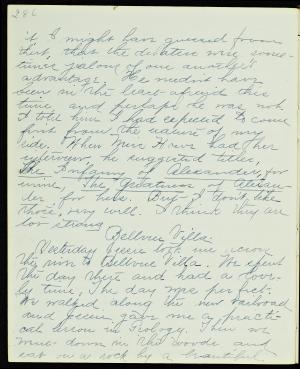 286
it I might have guessed from
that, that the debaters were some-
times jealous of one another's
advantage. He needn't have
been in the least afraid this
time, and perhaps he was not.
I told him I had expected to come
first from the nature of my
side. When Miss Howe had her
interview he suggested titles,
The Infamy of Alexander, for
mine, The Greatness of Alexan-
der for hers. But I don't like
those, very well. I think they are
too strong.
Bellevue Villa
Yesterday took me across
the river to Bellevue Villa. We spent
the day there and had a love-
ly time, The day was perfect.
We walked along the new railroad
and gave me a practi-
cal lesson in Geology. Then we
went down in the woods and
sat on a rock by a beautiful